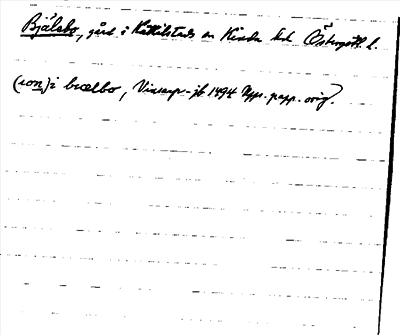 Bjälebo, gård i Kättilstads sn Kinda hd Östergötl. l.
(ion) i bœlbo, Vinarp-jb 1494 Upps. papp. orig.